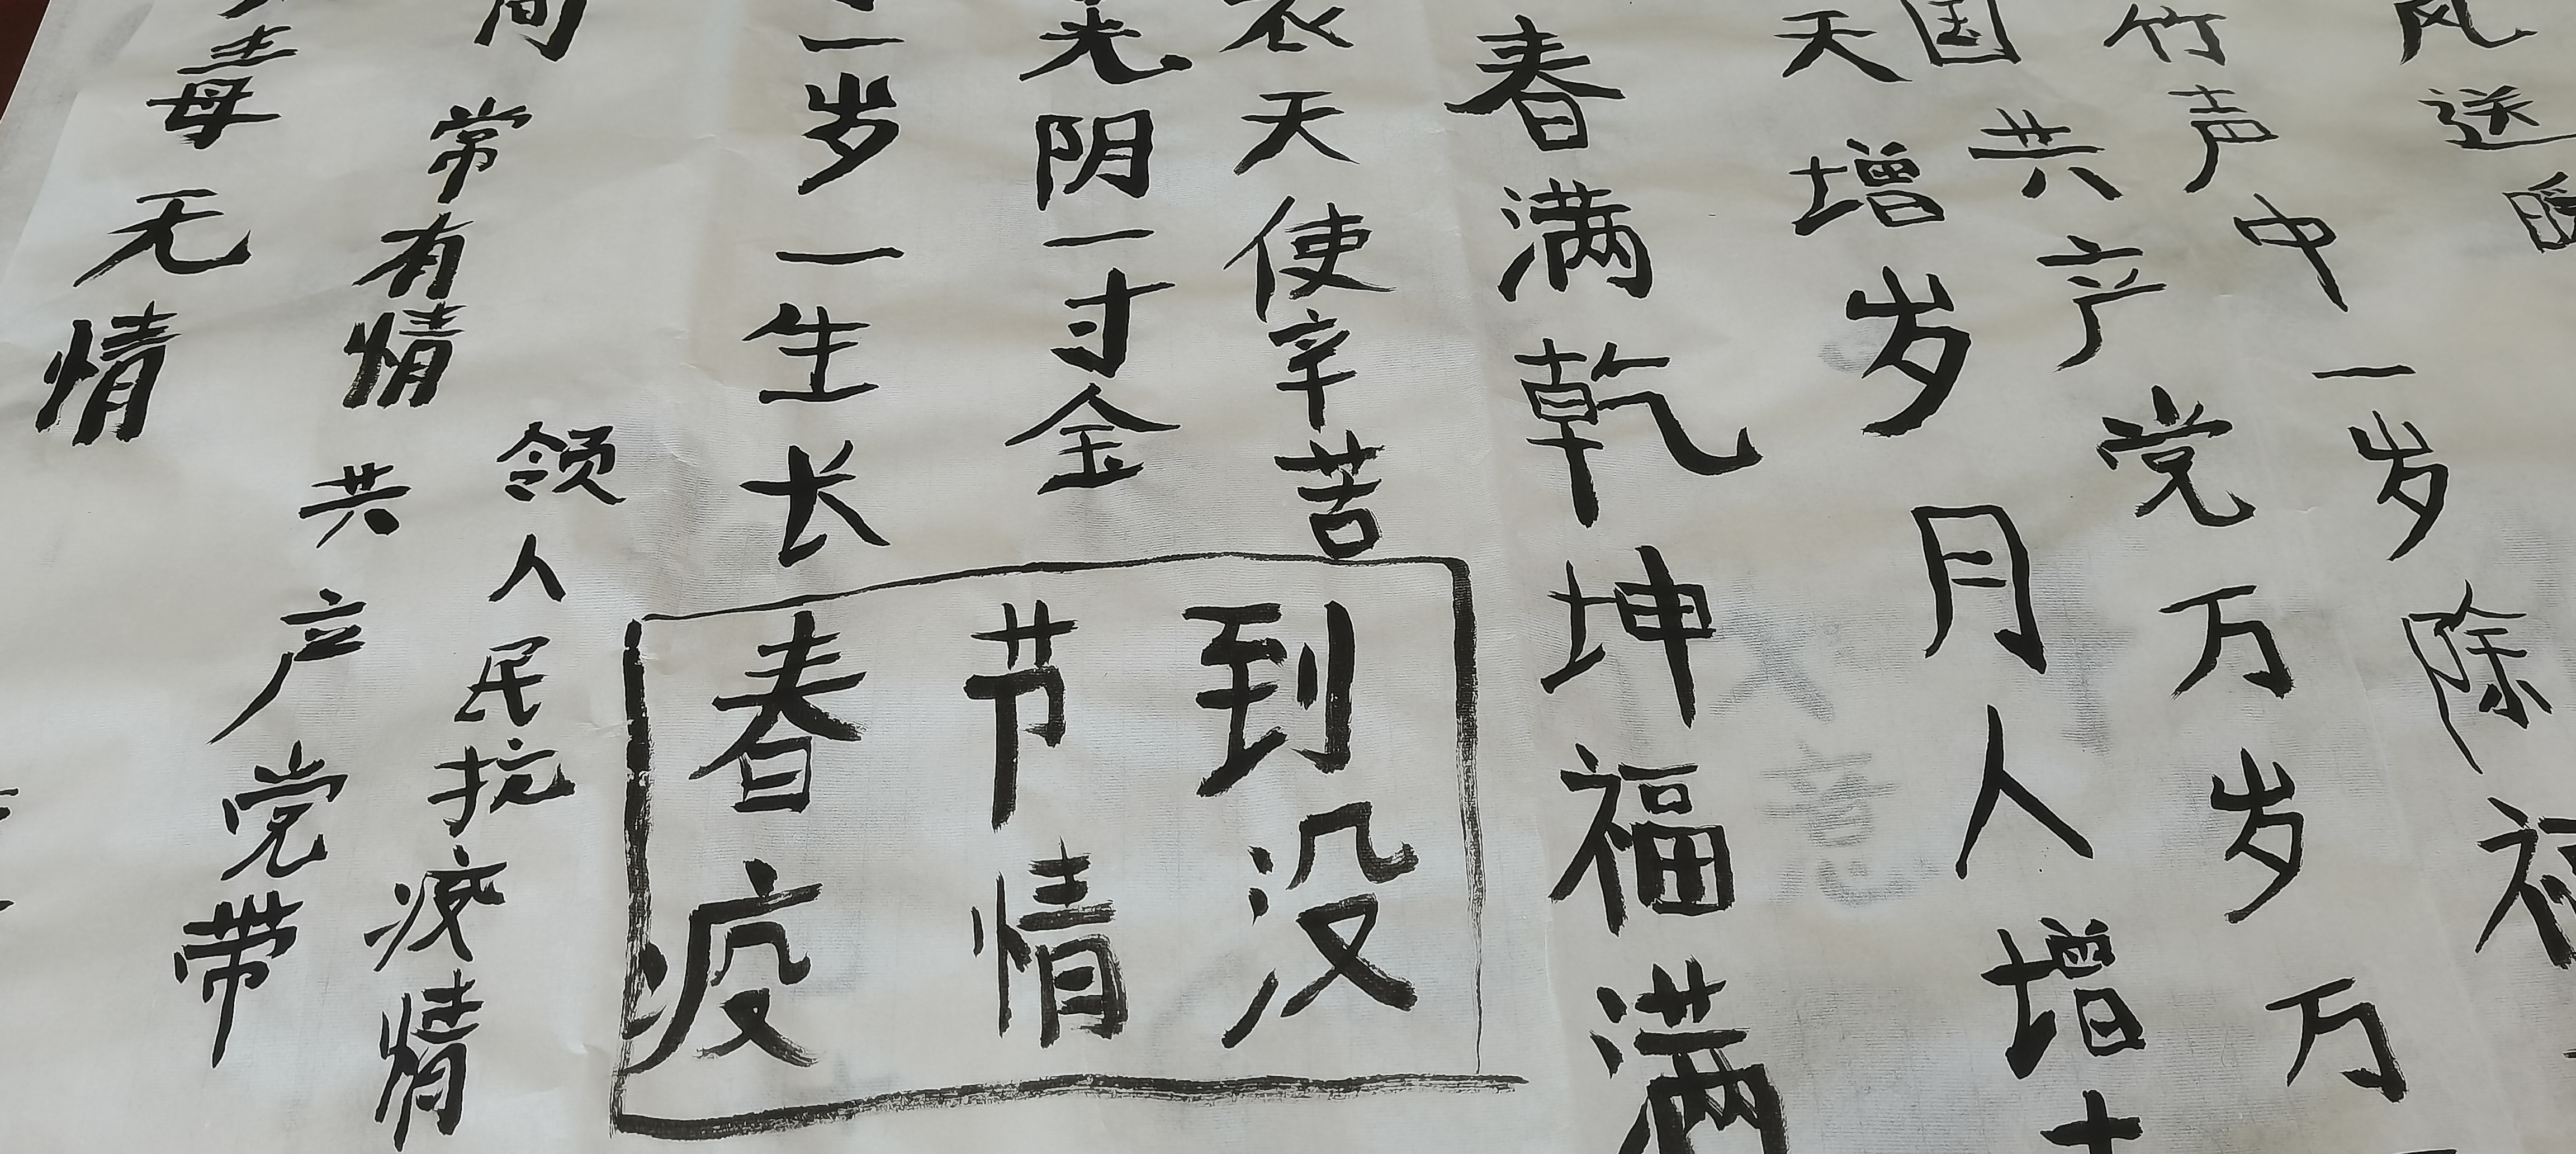 毒无情
间常有情
共产党带
领人民抗疫情
一岁一生长
光阴一寸金
衣天使辛苦
春节到
疫情没
春满乾坤福满
天增岁月人增
国共产党万岁万
竹声中一岁除
风送